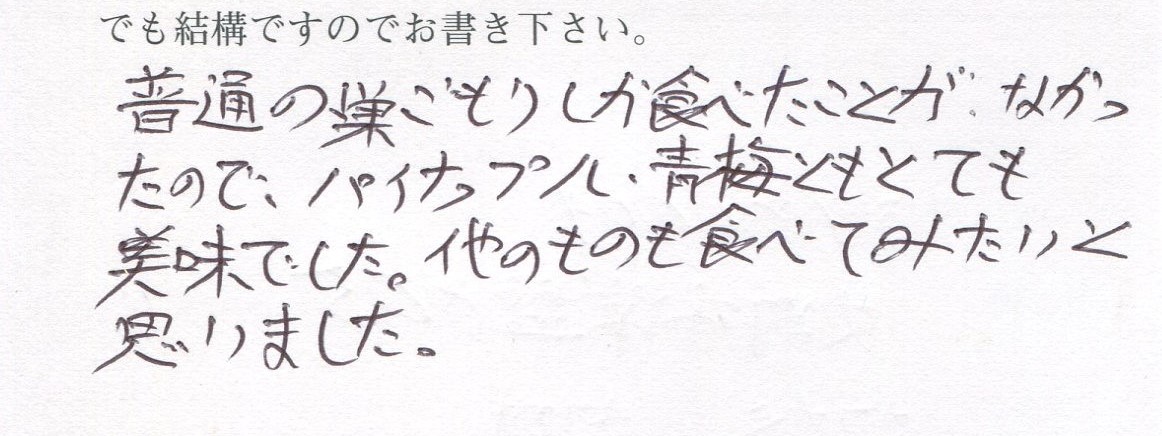 でも結構ですのでお書き下さい。
普通の巣ごもりしか食べたことが、なかっ
たので、パイナップル・青梅ともとても
美味でした。他のものも食べてみたいと
思いました。